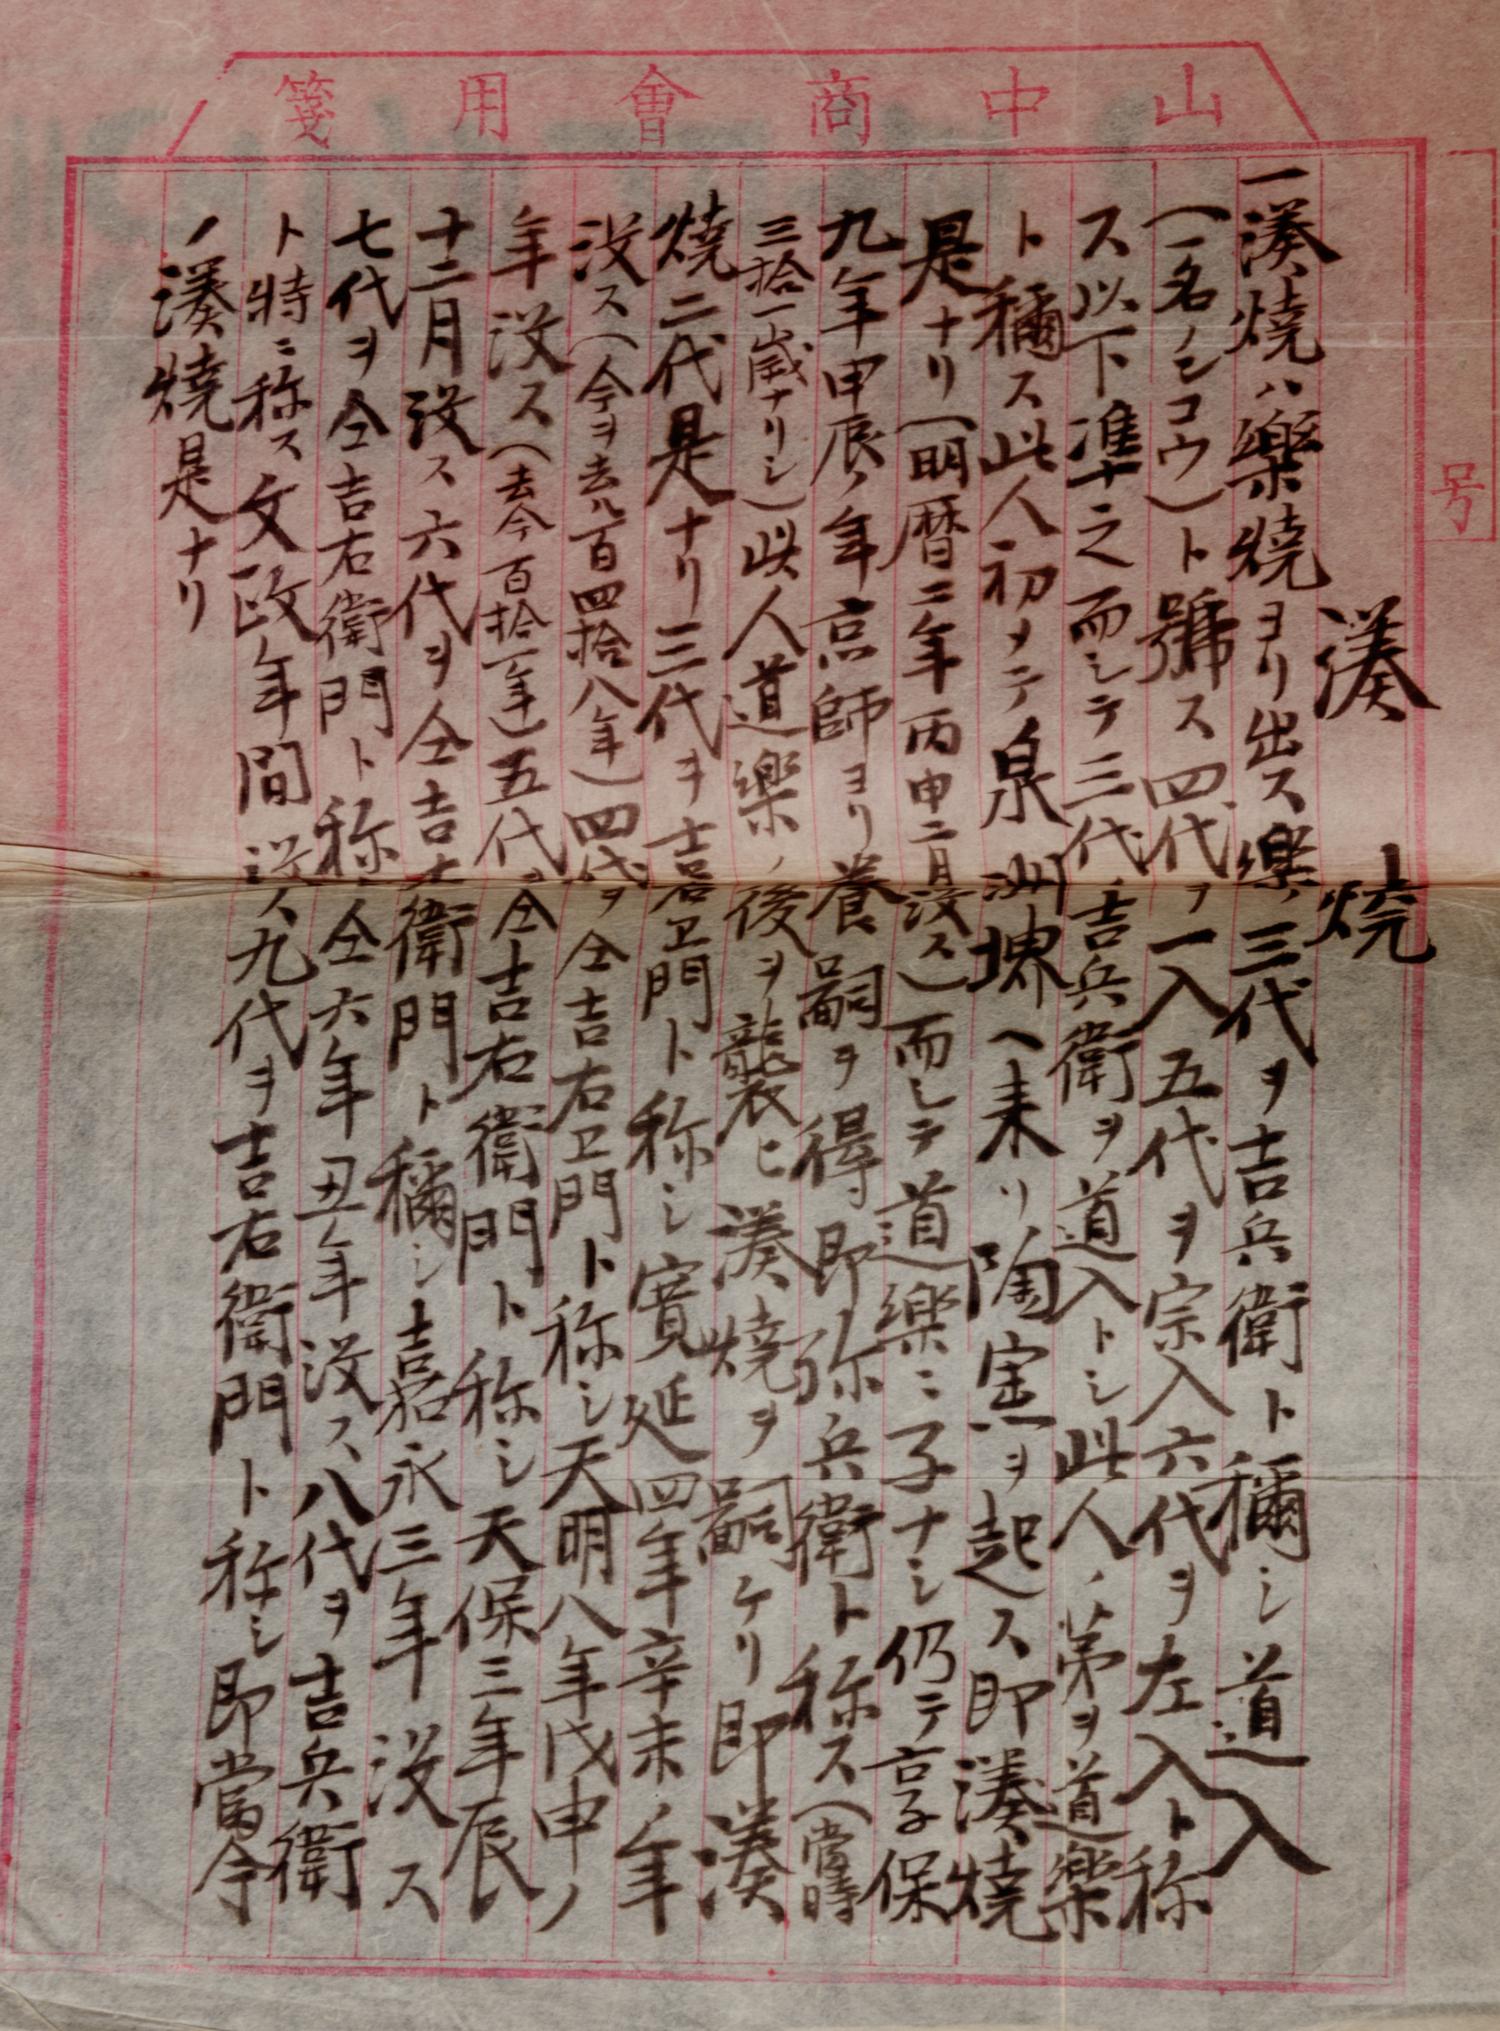 山中商會用箋
号
湊燒
一湊燒ハ樂燒ヨリ出ス樂ノ三代ヲ吉兵衛ト穪シ道入
(一名ノンコウ)ト號ス四代ヲ一入五代ヲ宗入六代ヲ左入ト称
ス以下準之而シテ三代吉兵衛ヲ道入トシ此人ノ苐ヲ道樂
ト穪ス此人初メテ泉洲堺ヘ来リ陶窯ヲ起ス即湊燒
是ナリ(明暦二年丙申二月没ス)而シテ道樂ニ子ナシ仍テ享保
九年甲辰ノ年京師ヨリ養嗣ヲ得即弥兵衛ト称ス(當時
三拾一歳ナリシ)此人道樂ノ後ヲ襲ヒ湊燒ヲ嗣ケリ即湊
燒二代是ナリ三代ヲ吉右ヱ門ト称シ寛延四年辛未ノ年
没ス(今ヲ去ル百四拾八年)四代ヲ仝吉右ヱ門ト称シ天明八年戊申ノ
年没ス(去今百拾一年)五代ヲ仝吉右衛門ト称シ天保三年辰ノ
十二月没ス六代ヲ仝吉右衛門ト穪シ嘉永三年没ス
七代ヲ仝吉右衛門ト称ス仝六年丑ノ年没ス八代ヲ吉兵衛
ト特ニ称ス文政年間没ス九代ヲ吉右衛門ト称シ即當今
ノ湊燒是ナリ